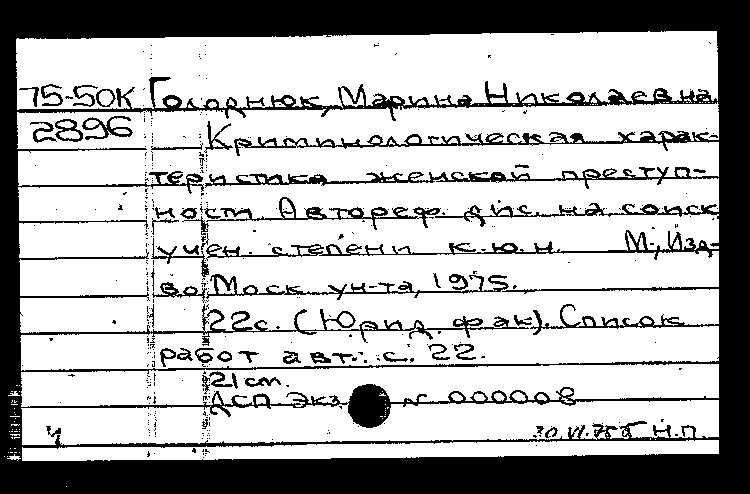 75-50К Голоднюк, Марина Николаевна.
2896 Криминологическая харак-
теристика женской преступ-
ности. Автореф. дис. на соиск.
учен. степени к.ю.н. М., Изд-
во Моск. ун-та, 1975.
22с. (Юрид. фак). Список
работ авт.: с. 22.
21 см.
ДСП Экз N 000008
Ч 30.VI.75 Н.П.